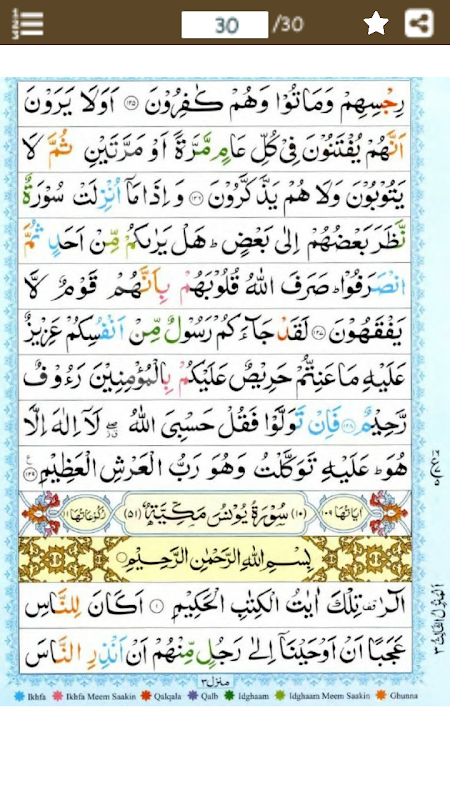 30 /30
رِجْسِهِمْ وَمَاتُوْا وَهُمْ كٰفِرُوْنَ ﴿۱۲۵﴾ اَوَلَا يَرَوْنَ
اَنَّهُمْ يُفْتَنُوْنَ فِيْ كُلِّ عَامٍ مَّرَّةً اَوْ مَرَّتَيْنِ ثُمَّ لَا
يَتُوْبُوْنَ وَلَا هُمْ يَذَّكَّرُوْنَ ﴿۱۲۶﴾ وَاِذَا مَاۤ اُنْزِلَتْ سُوْرَةٌ
نَّظَرَ بَعْضُهُمْ اِلٰى بَعْضٍ ؕ هَلْ يَرٰىكُمْ مِّنْ اَحَدٍ ثُمَّ
انْصَرَفُوْا ؕ صَرَفَ اللّٰهُ قُلُوْبَهُمْ بِاَنَّهُمْ قَوْمٌ لَّا
يَفْقَهُوْنَ ﴿۱۲۷﴾ لَقَدْ جَآءَكُمْ رَسُوْلٌ مِّنْ اَنْفُسِكُمْ عَزِيْزٌ
عَلَيْهِ مَا عَنِتُّمْ حَرِيْصٌ عَلَيْكُمْ بِالْمُؤْمِنِيْنَ رَءُوْفٌ
رَّحِيْمٌ ﴿۱۲۸﴾ فَاِنْ تَوَلَّوْا فَقُلْ حَسْبِيَ اللّٰهُ لَاۤ اِلٰهَ اِلَّا
هُوَ ؕ عَلَيْهِ تَوَكَّلْتُ وَهُوَ رَبُّ الْعَرْشِ الْعَظِيْمِ ﴿۱۲۹﴾
اٰيَاتُهَا ۱۰۹ (۱۰) سُوْرَةُ يُوْنُسَ مَكِّيَّةٌ (۵۱) رُكُوْعَاتُهَا ۱۱
بِسْمِ اللّٰهِ الرَّحْمٰنِ الرَّحِيْمِ
الٓرٰ تِلْكَ اٰيٰتُ الْكِتٰبِ الْحَكِيْمِ ﴿۱﴾ اَكَانَ لِلنَّاسِ
عَجَبًا اَنْ اَوْحَيْنَاۤ اِلٰى رَجُلٍ مِّنْهُمْ اَنْ اَنْذِرِ النَّاسَ
منزل ۳
Ikhfa Ikhfa Meem Saakin Qalqala Qalb Idghaam Idghaam Meem Saakin Ghunna